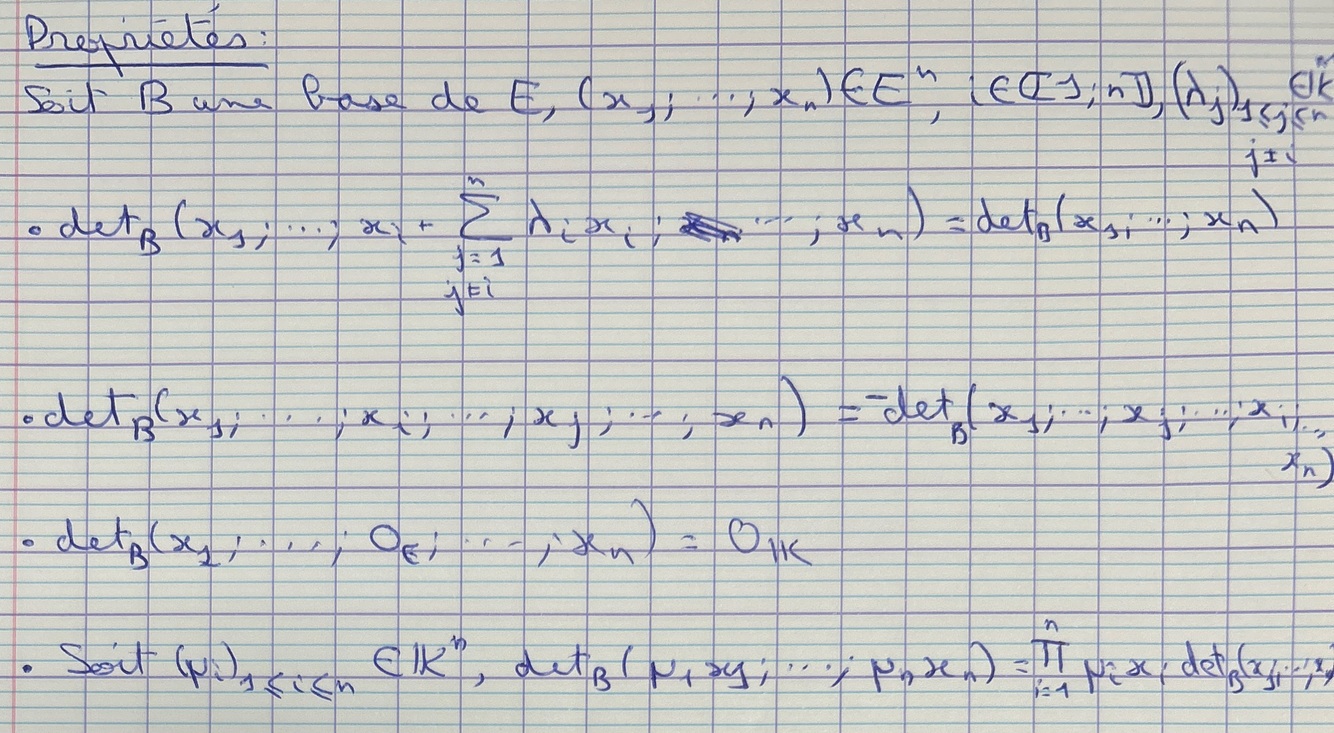 Propriétés:
Soit B une base de E, (x₁; ...; xₙ) ∈ Eⁿ, i ∈ ⟦1; n⟧, (λⱼ)₁≤ⱼ≤ₙ ∈ 𝕂ⁿ
j≠i
• det_B (x₁; ...; xᵢ + ∑ⁿ_{j=1, j≠i} λᵢ xᵢ; ...; xₙ) = det_B(x₁; ...; xₙ)
• det_B(x₁; ...; xᵢ; ...; xⱼ; ...; xₙ) = -det_B(x₁; ...; xⱼ; ...; xᵢ; ...;
xₙ)
• det_B(x₁; ...; 0_E; ...; xₙ) = 0_𝕂
• Soit (μᵢ)₁≤ᵢ≤ₙ ∈ 𝕂ⁿ, det_B(μ₁x₁; ...; μₙxₙ) = ∏ⁿ_{i=1} μᵢ x det_B(x₁; ...; x